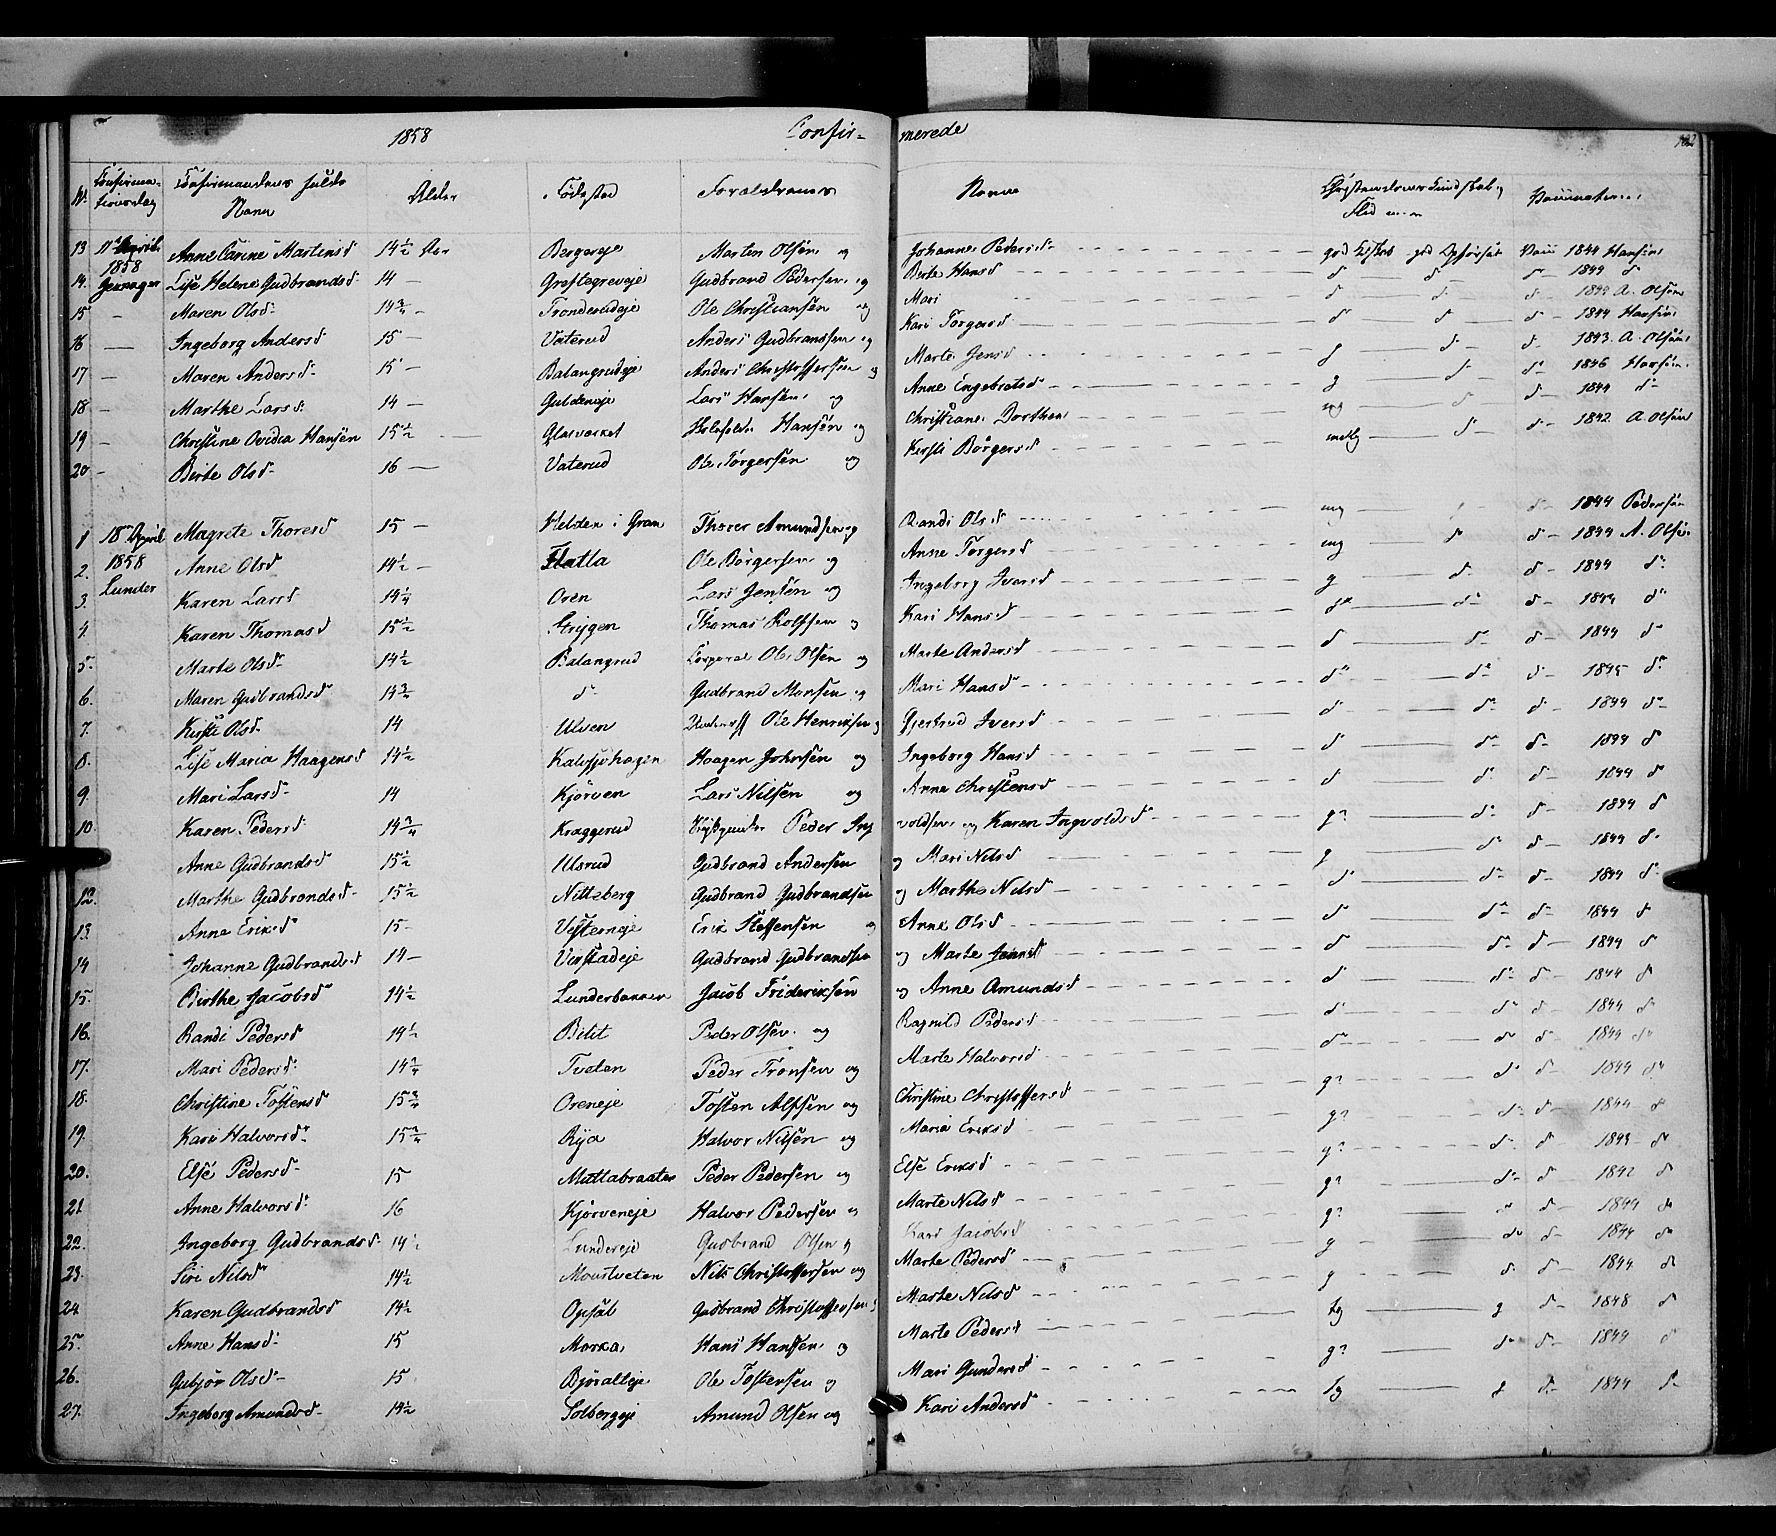 1858 Confirmerede 102
No. Confirmationsdag Confirmandens fulde Navn Alder Fødested Forældrenes Navne Christendoms Kundskab og Flid Vaccinationen
13 11te April 1858 Anne Carine Martinsd 14½ Aar Bergereje Marten Olsen og Johanne Pedersd. god Kdskb god Opførsel Vacc 1844 Hansen
14. Gevnager Lise Helene Gudbrandsd. 14 – Gudbrand Pedersen og Berte Hansd d d d 1844 d
15 – Maren Olsd. 14¾ – Tronderudeje Ole Christiansen og Mari d d d 1844 A. Olsen
16 – Ingeborg Andersd 15 – Vaterud Anders Gudbrandsen og Kari Torgersd d d d 1844 Hansen
17 – Maren Andersd. 15 – Balangrudeje Anders Christoffersen og Marte Jensd g d d 1843. A. Olsen
18 – Marthe Larsd. 14 – Guldeneje Lars Hansen og Anne Engebretsd g d d 1846 Hansen
19 – Christine Ovidia Hansen 15½ Glasværket Hansen og Christiane Dorthea mg d d 1844 d
20 – Birte Olsd. 16 – Vaterud Ole Torgersen og Kirsti Börgersd d d 1842 A Olsen
1 18de April 1858 Lunder Magrete Thoresd 15 – i Gran Thorer Amundsen og Randi Olsd mg d 1844 Pedersen
2. Anne Olsd 14½ – Flatla Ole Börgersen og Anne Torgersd mg d d 1844 A. Olsen
3. Karen Larsd 14¼ Oren Lars Jensen og Ingeborg Iversd g d d 1844 d
4. Karen Thomasd 15½ Strygen Thomas Rolfsen og Kari Hansd d d d 1844 d
5. Marte Olsd. 14½ Balangrud Corporal Ole Olsen og Marte Andersd d d d 1844 d
6. Maren Gudbrandsd 14¾ d Gudbrand Monsen og Mari Hansd d d d 1845 d
7. Kirsti Olsd. 14 Ulven Ole Henriksen og Gjertrud Iversd d d d 1844 d
8. Lise Maria Haagensd 14½ Kalvsjøhagen Haagen Johnsen og Ingeborg Hansd d d d 1844 d
9. Mari Larsd. 14 Kjörven Lars Nilsen og Anne Christensd d d d 1844 d
10. Karen Pedersd. 14¾ Kraggerud Peder Ingvoldsen og Karen Ingvoldsd g d d 1844 d
Anne Gudbrandsd 15½ Ulsrud Gudbrand Andersen og Mari Nilsd g d d 1844 d
12. Marthe Gudbrandsd. 15½ Nitteberg Gudbrand Gudbrandsen og Marthe Nilsd d d d 1844 d
13. Anne Eriksd 15 – Vesterneje Erik Steffensen og Anne Olsd d d d 1844 d
14 Johanne Gudbrandsd 14 – Gudbrand Gudbrandsen og Marte d d d 1844 d
15. Birthe Jacobsd 14½ Lunderbakken Jacob Frideriksen og Anne Amundsd d d d 1844 d
16. Randi Pedersd 14½ Bilit Peder Olsen og Ragnild Pedersd d d d 1844 d
17. Mari Pedersd. 14¾ Tveten Peder Tronsen og Marte Halvorsd d d d 1844 d
18. Christine Tostensd 15¾ Oreneje Tosten Alfsen og Christine Christoffersd g d d 1844 d
19. Kari Halvorsd. 15¾ Rya Halvor Nilsen og Maria Eriksd g d d 1844 d
20. Else Pedersd. 15 Muttabraaten Peder Pedersen og Else Eriksd g d d 1843 d
21 Anne Halvorsd. 16 Kjörveneje Halvor Pedersen og Marte Nilsd g d d 1842 d
22. Ingeborg Gudbrandsd. 14½ Lundereje Gudbrand Olsen og Kari Jacobsd g d d 1844 d
23. Siri Nilsd 14½ Nils Christoffersen og Marte Pedersd g d d 1844 d
24. Karen Gudbrandsd 14½ Opsal Gudbrand Christoffersen og Marte Nilsd g d d 1844 d
25. Anne Hansd. 15 Morka Hans Hansen og Marte Pedersd tg g d 1848 d
26. Gubjør Olsd. 15 Ole Tostensen og Mari Gundersd g d d 1844 d
27. Ingeborg Amundsd. 14½ Solbergeje Amund Olsen og Kari Andersd tg g d 1844 d